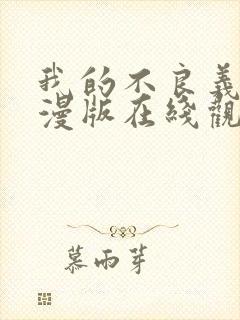 我的不良義
漫版在綫觀
慕雨芽